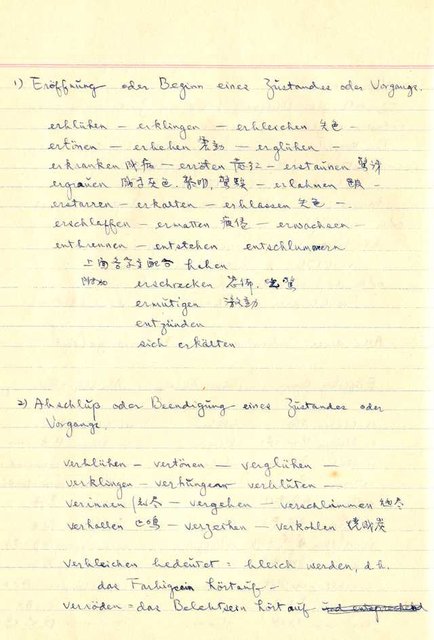 1) Eröffnung oder Beginn eines Zustandes oder Vorgangs.
erblühen — erklingen — erbleichen 失色 —
ertönen — erbeben 震動 — erglühen —
erkranken 成病 — erröten — erstaunen 驚訝
ergrauen — erlahnen
erstarren — erkalten — erblassen 失色 —
erschlaffen — ermatten 疲倦 — erwachsen —
entbrennen — entstehen entschlummern
haben
附加 erschrecken
ermutigen 激動
entzünden
sich erkälten
2) Abschluß oder Beendigung eines Zustandes oder
Vorgangs
verblühen — vertönen — verglühen —
verklingen — verhungern verbluten —
verinnen — vergehen — verschlimmern
verhallen — verzehren — verkohlen 燒成炭
verbleichen bedeutet = bleich werden, d.h.
das Farbigsein hört auf —
veröden = das Belebtsein hört auf und entsprechend